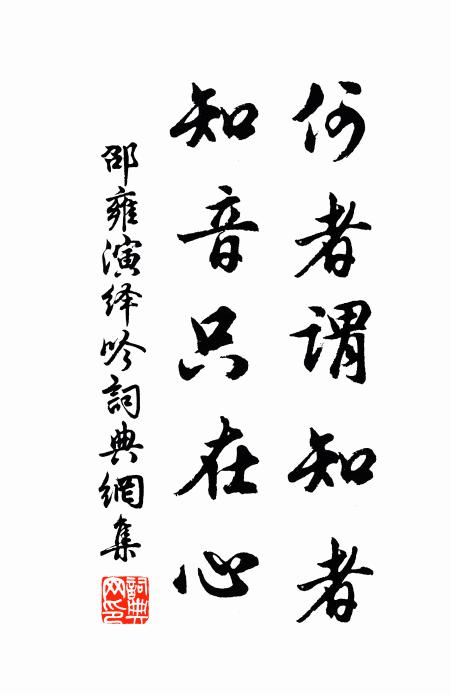 何者謂知者
知音只在心
邵雍演绎吟詞典網集
詞典
网印